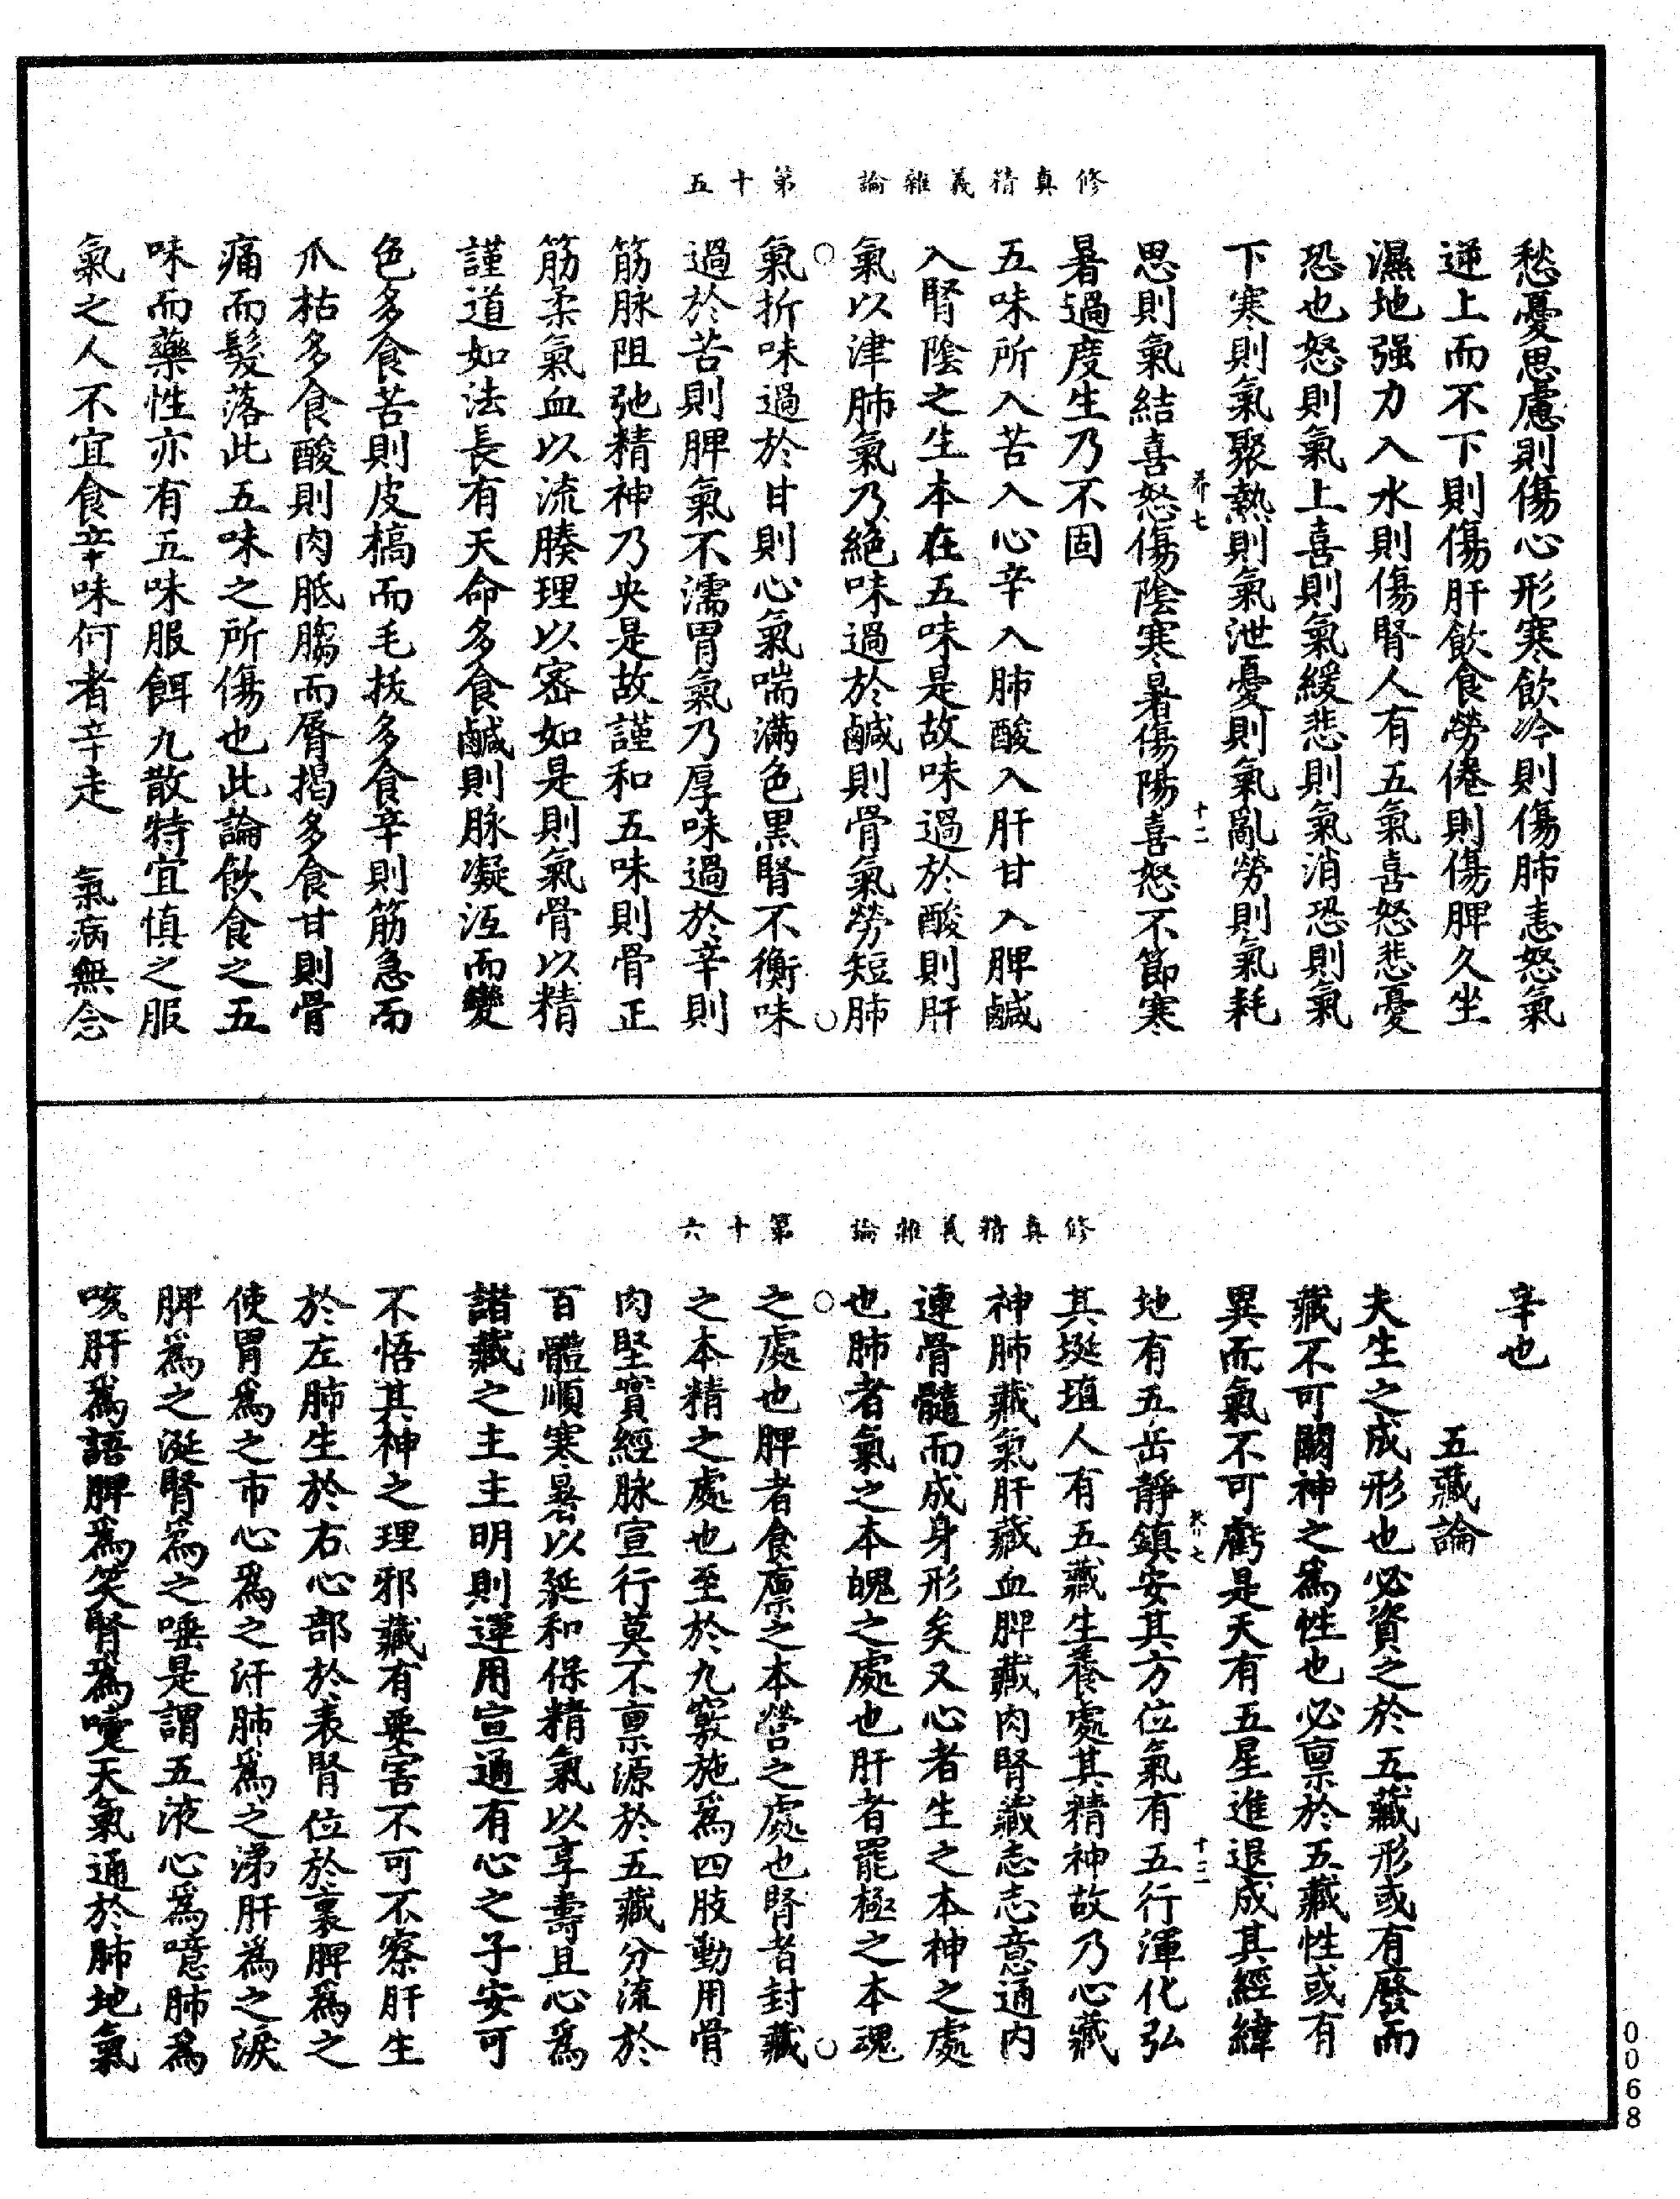 修真精義雜論　第十五
愁憂思慮則傷心形寒飲冷則傷肺恚怒氣
逆上而不下則傷肝飲食勞倦則傷脾久坐
濕地强力入水則傷腎人有五氣喜怒悲憂
恐也怒則氣上喜則氣緩悲則氣消恐則氣
下寒則氣聚熱則氣泄憂則氣亂勞則氣耗
思則氣結喜怒傷陰寒暑傷陽喜怒不節寒
暑過度生乃不固
五味所入苦入心辛入肺酸入肝甘入脾鹹
入腎陰之生本在五味是故味過於酸則肝
氣以津肺氣乃絕味過於鹹則骨氣勞短肺
氣折味過於甘則心氣喘滿色黑腎不衡味
過於苦則脾氣不濡胃氣乃厚味過於辛則
筋脉阻弛精神乃央是故謹和五味則骨正
筋柔氣血以流腠理以密如是則氣骨以精
謹道如法長有天命多食鹹則脉凝沍而變
色多食苦則皮槁而毛拔多食辛則筋急而
爪枯多食酸則肉胝䐢而脣揭多食甘則骨
痛而髮落此五味之所傷也此論飲食之五
味而藥性亦有五味服餌九散特宜慎之服
氣之人不宜食辛味何者辛走　氣病無念
修真精義雜論　第十六
辛也
五藏論
夫生之成形也必資之於五藏形或有廢而
藏不可闕神之爲性也必禀於五藏性或有
異而氣不可虧是天有五星進退成其經緯
地有五岳靜鎮安其方位氣有五行渾化弘
其埏埴人有五藏生養處其精神故乃心藏
神肺藏氣肝藏血脾藏肉腎藏志志意通內
連骨髓而成身形矣又心者生之本神之處
也肺者氣之本魄之處也肝者罷極之本魂
之處也脾者食廩之本營之處也腎者封藏
之本精之處也至於九竅施爲四肢動用骨
肉堅實經脉宣行莫不禀源於五藏分流於
百體順寒暑以延和保精氣以享壽且心爲
諸藏之主主明則運用宣通有心之子安可
不悟其神之理邪藏有要害不可不察肝生
於左肺生於右心部於表腎位於裏脾爲之
使胃爲之市心爲之汗肺爲之涕肝爲之淚
脾爲之涎腎爲之唾是謂五液心爲噫肺爲
咳肝爲語脾爲笑腎爲嚏天氣通於肺地氣
0068